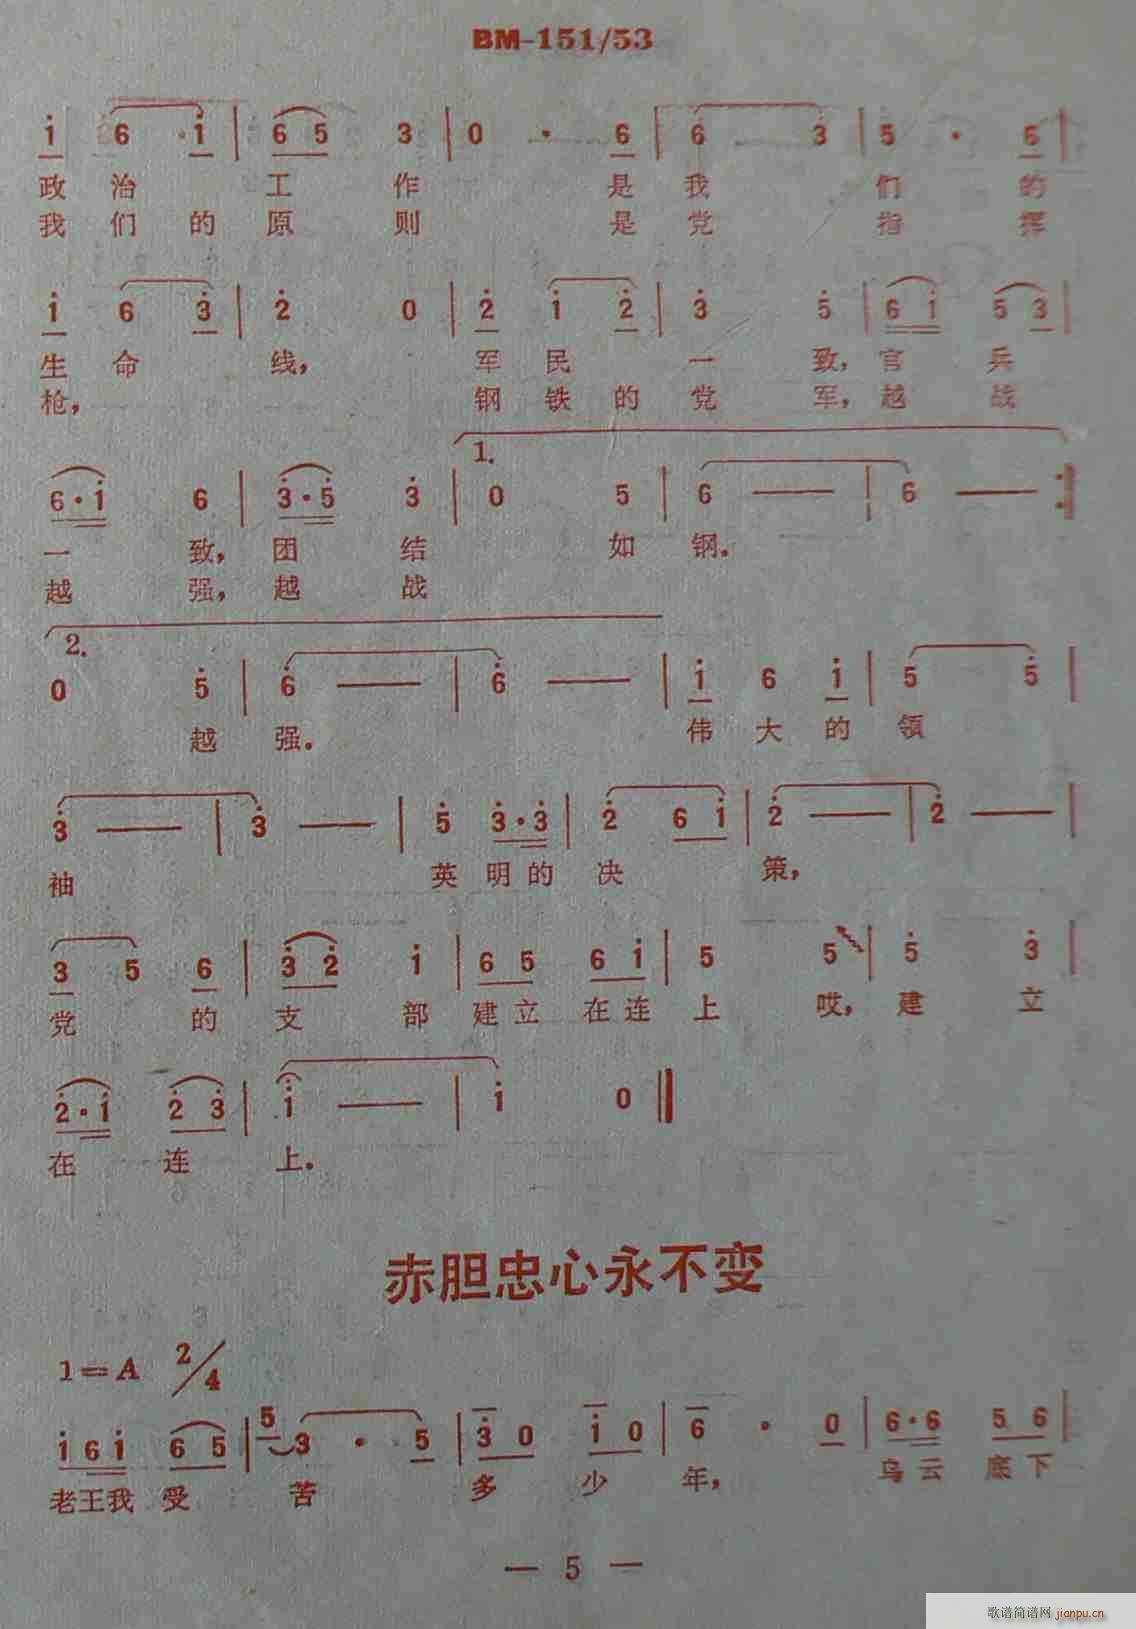 BM-151/53
i 6 · i | 6 5 3 | 0 · 6 | 6 3 | 5 · 6 |
政治 工作 是我 们 的
我们的原则 是党 指 挥
i 6 3 | 2 0 | 2 i 2 | 3 5 | 6 i 5 3 |
生命 线， 军民 一 致，官 兵
枪， 钢铁的党 军，越 战
1.
6·i 6 | 3·5 3 | 0 5 | 6 — | 6 — :|
一 致，团 结 如 钢。
越 强，越 战
2.
0 5 | 6 — | 6 — | i 6 i | 5 5 |
越 强。 伟大的领
3 — | 3 — | 5 3·3 | 2 6 i | 2 — | 2 — |
袖 英明的决 策，
3 5 6 | 3 2 i | 6 5 6 i | 5 5 | 5 3 |
党 的 支 部 建立在连上 哎，建 立
2·i 2 3 | i — | i 0 ‖
在 连 上。
赤胆忠心永不变
1=A 2/4
i 6 i 6 5 | 5 3 · 5 | 3 0 i 0 | 6 · 0 | 6·6 5 6 |
老王我受 苦 多 少 年， 乌云底下
— 5 —
歌谱简谱网 jianpu.cn